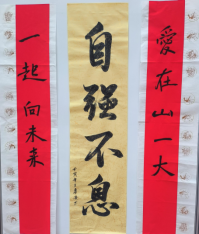 愛在山一大
自强不息
一起向未来